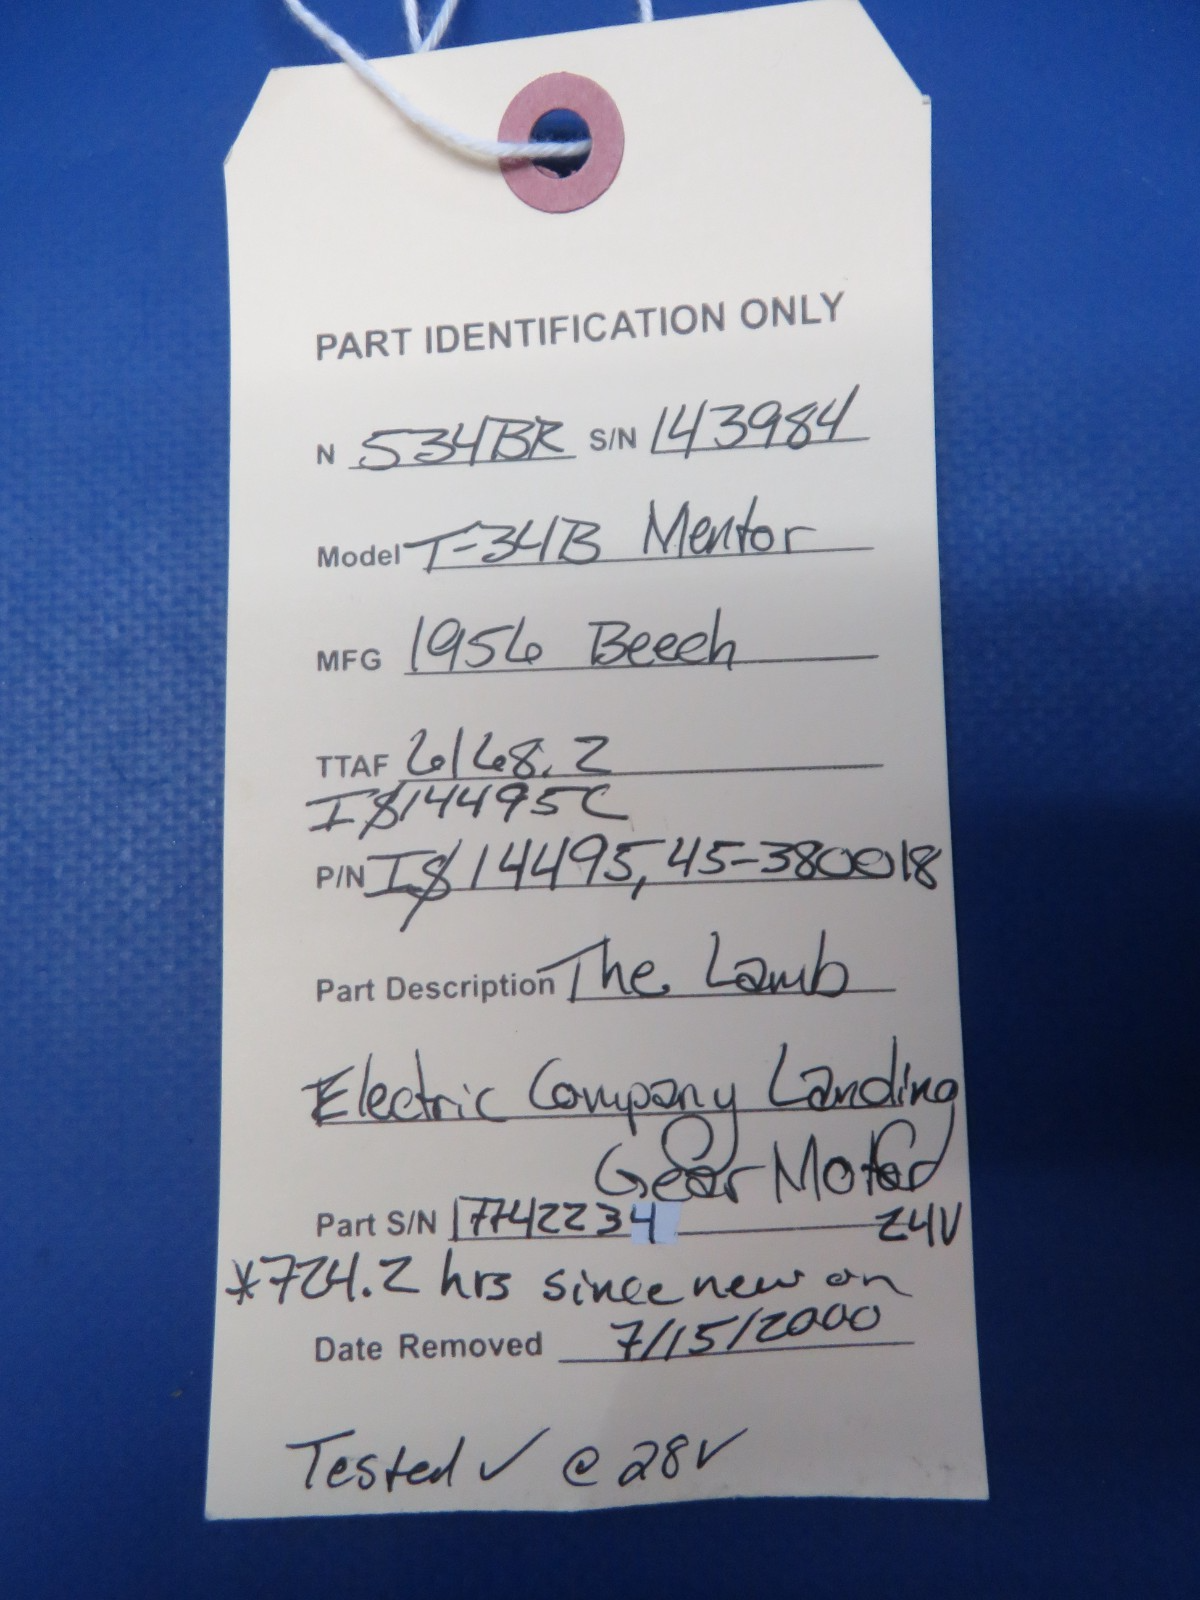 PART IDENTIFICATION ONLY
N 534BR S/N 143984
Model T-34B Mentor
MFG 1956 Beech
TTAF 6168.2
I$14495C
P/N I$14495, 45-380018
Part Description The Lamb
Electric Company Landing
Gear Motor
Part S/N 17742234 24V
*724.2 hrs since new on
Date Removed 7/15/2000
Tested ✓ @ 28V